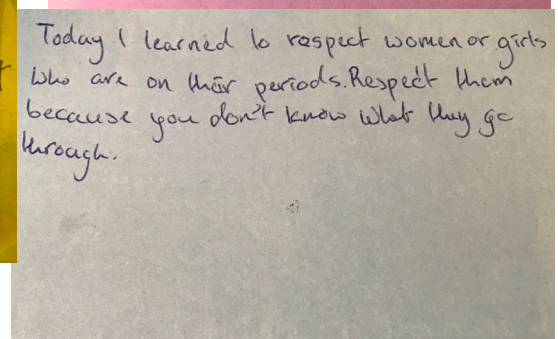 Today I learned to respect women or girls
who are on their periods. Respect them
because you don't know what they go
through.